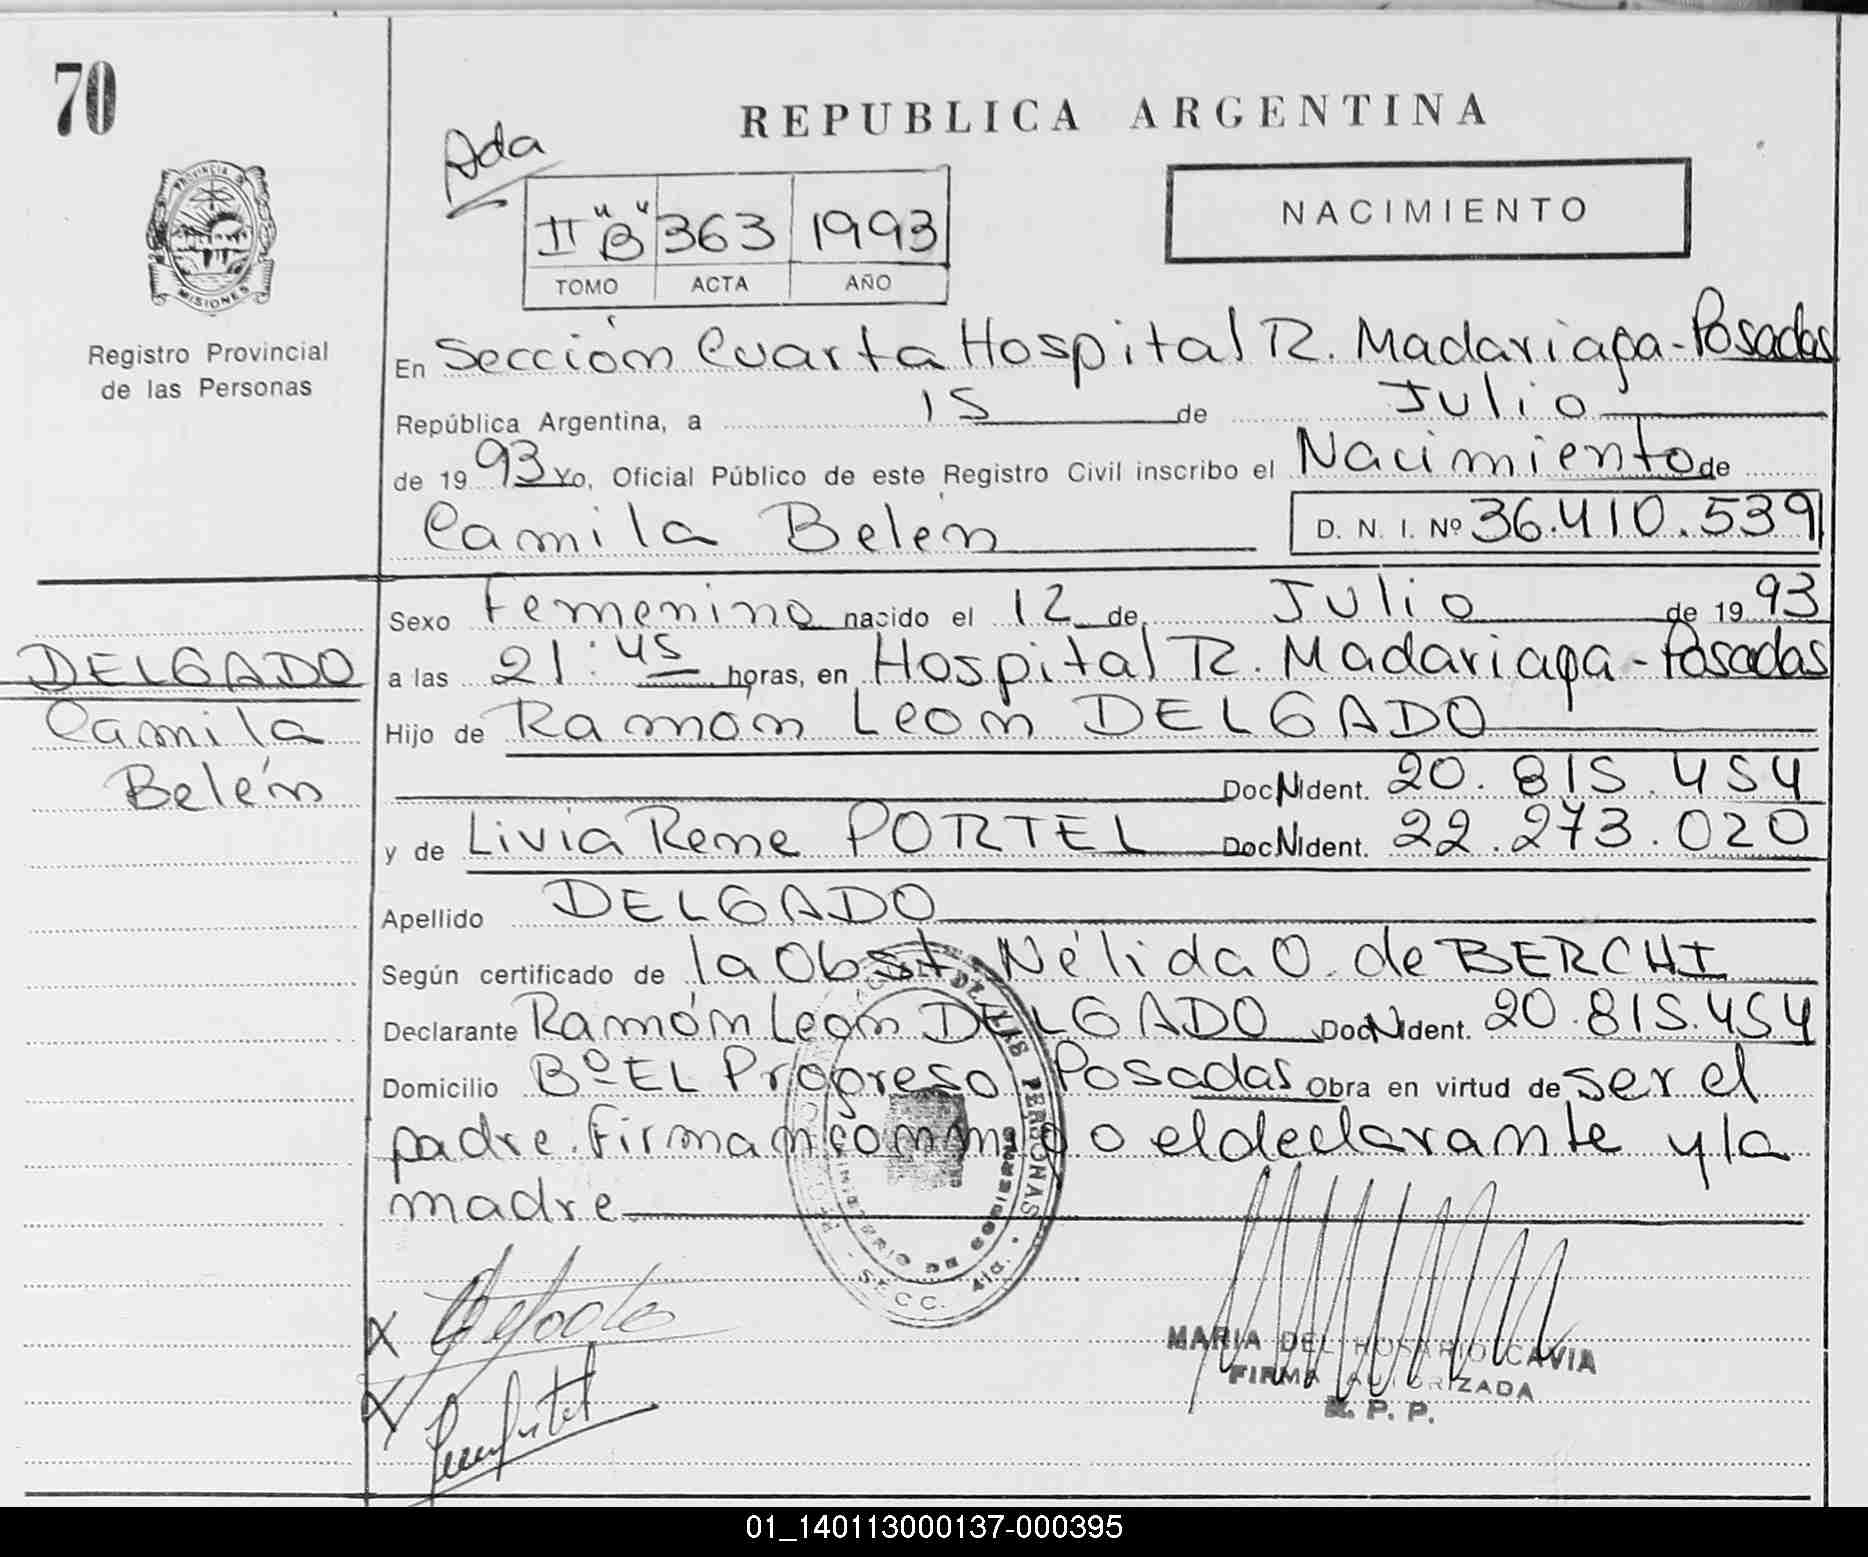 70
REPUBLICA ARGENTINA
Ada
II "B" 363 1993
TOMO ACTA AÑO
NACIMIENTO
PROVINCIA D
MISIONES
Registro Provincial
de las Personas
En Sección Cuarta Hospital R. Madariaga - Posadas
República Argentina, a 15 de Julio
de 19 93 Yo, Oficial Público de este Registro Civil inscribo el Nacimiento de
Camila Belén D. N. I. Nº 36.410.539
Sexo Femenino nacido el 12 de Julio de 19 93
DELGADO
Camila
Belén
a las 21:45 horas, en Hospital R. Madariaga - Posadas
Hijo de Ramón León DELGADO
Doc N Ident. 20.815.454
y de Livia Rene PORTEL Doc N Ident. 22.273.020
Apellido DELGADO
Según certificado de la Obst Nélida O. de BERCHI
Declarante Ramón León DELGADO Doc N Ident. 20.815.454
Domicilio Bº EL Progreso Posadas Obra en virtud de ser el
padre. Firman conmigo el declarante y la
madre
DE LAS PERSONAS
MINISTERIO DE GOBIERNO
SECC. 4ta.
X Delgado
X
MARIA DEL ROSARIO CAVIA
FIRMA AUTORIZADA
R. P. P.
01_140113000137-000395